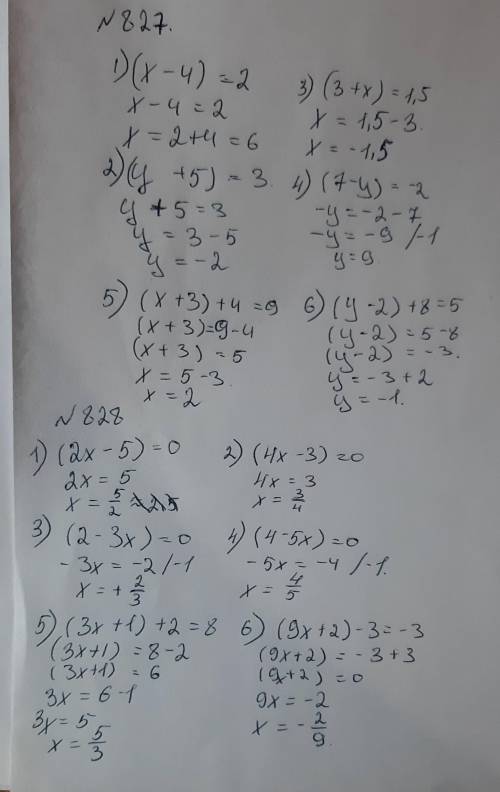 № 827.
1) (x - 4) = 2
x - 4 = 2
x = 2+4 = 6
2) (y + 5) = 3.
y + 5 = 3
y = 3 - 5
y = -2
3) (3 + x) = 1,5
x = 1,5 - 3.
x = -1,5
4) (7 - y) = -2
-y = -2 - 7
-y = -9 /-1
y = 9.
5) (x + 3) + 4 = 9
(x + 3) = 9 - 4
(x + 3) = 5
x = 5 - 3.
x = 2
6) (y - 2) + 8 = 5
(y - 2) = 5 - 8
(y - 2) = -3.
y = -3 + 2
y = -1.
№ 828
1) (2x - 5) = 0
2x = 5
x = 5/2
2) (4x - 3) = 0
4x = 3
x = 3/4
3) (2 - 3x) = 0
- 3x = -2 /-1
x = + 2/3
4) (4 - 5x) = 0
- 5x = -4 /-1.
x = 4/5
5) (3x + 1) + 2 = 8
(3x+1) = 8 - 2
(3x+1) = 6
3x = 6 - 1
3x = 5
x = 5/3
6) (9x + 2) - 3 = -3
(9x+2) = - 3 + 3
(9x+2) = 0
9x = -2
x = - 2/9.